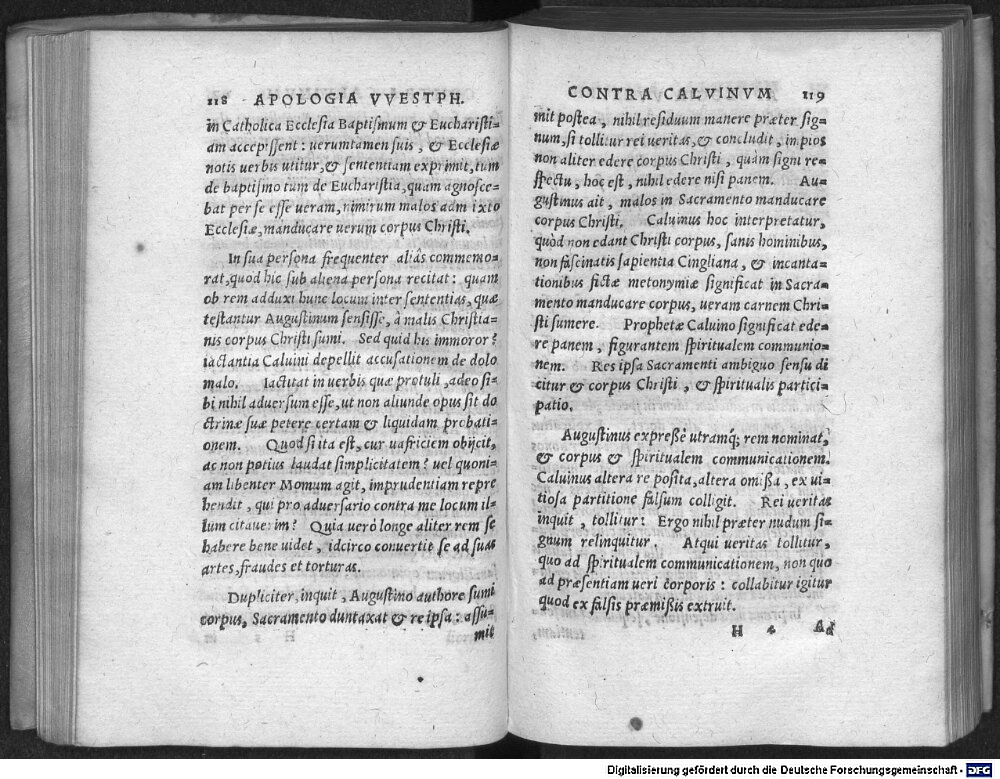 118 APOLOGIA VVESTPH.
in Catholica Ecclesia Baptismum & Eucharisti-
am accepissent: uerumtamen suis, & Ecclesiæ
notis uerbis utitur, & sententiam exprimit, tum
de baptismo tum de Eucharistia, quam agnosce-
bat per se esse ueram, nimirum malos adm ixto
Ecclesiæ, manducare uerum corpus Christi.
In sua persona frequenter aliâs commemo-
rat, quod hic sub aliena persona recitat: quam
ob rem adduxi hunc locum inter sententias, quæ
testantur Augustinum sensisse, à malis Christia-
nis corpus Christi sumi. Sed quid his immoror?
iactantia Caluini depellit accusationem de dolo
malo. Iactitat in uerbis quæ protuli, adeo si-
bi nihil aduersum esse, ut non aliunde opus sit do
ctrinæ suæ petere certam & liquidam probati-
onem. Quod si ita est, cur uafriciem obijcit,
ac non potius laudat simplicitatem? uel quoni-
am libenter Momum agit, imprudentiam repre
hendit, qui pro aduersario contra me locum il-
lum citauerim? Quia uerò longe aliter rem se
habere bene uidet, idcirco conuertit se ad suas
artes, fraudes et torturas.
Dupliciter, inquit, Augustino authore sumi
corpus, Sacramento duntaxat & re ipsa: assu-
mit
CONTRA CALVINVM 119
mit postea, nihil residuum manere præter sig-
num, si tollitur rei ueritas, & concludit, impios
non aliter edere corpus Christi, quàm signi re-
spectu, hoc est, nihil edere nisi panem. Au-
gustinus ait, malos in Sacramento manducare
corpus Christi. Caluinus hoc interpretatur,
quòd non edant Christi corpus, sanis hominibus,
non fascinatis sapientia Cingliana, & incanta-
tionibus fictæ metonymiæ significat in Sacra-
mento manducare corpus, ueram carnem Chri-
sti sumere. Prophetæ Caluino significat ede-
re panem, figurantem spiritualem communio-
nem. Res ipsa Sacramenti ambiguo sensu di
citur & corpus Christi, & spiritualis partici-
patio.
Augustinus expreßè utramq; rem nominat,
& corpus & spiritualem communicationem.
Caluinus altera re posita, altera omißa, ex ui-
tiosa partitione falsum colligit. Rei ueritas
inquit, tollitur: Ergo nihil præter nudum si-
gnum relinquitur. Atqui ueritas tollitur,
quo ad spiritualem communicationem, non quo
ad præsentiam ueri corporis: collabitur igitur
quod ex falsis præmißis extruit.
H 4 Ad
Digitalisierung gefördert durch die Deutsche Forschungsgemeinschaft - DFG